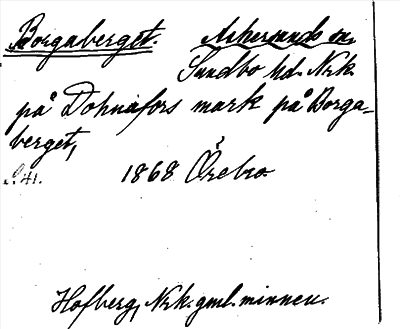 Borgaberget. Askersunds sn.
Sundbo hd. Nrk.
på Dohnafors mark på Borga-
berget,
S. 41. 1868 Örebro
Hofberg, Nrk. gml. minnen.